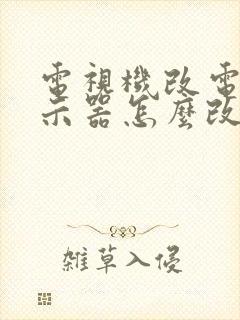 電視機改電
示器怎麼改
雜草入侵